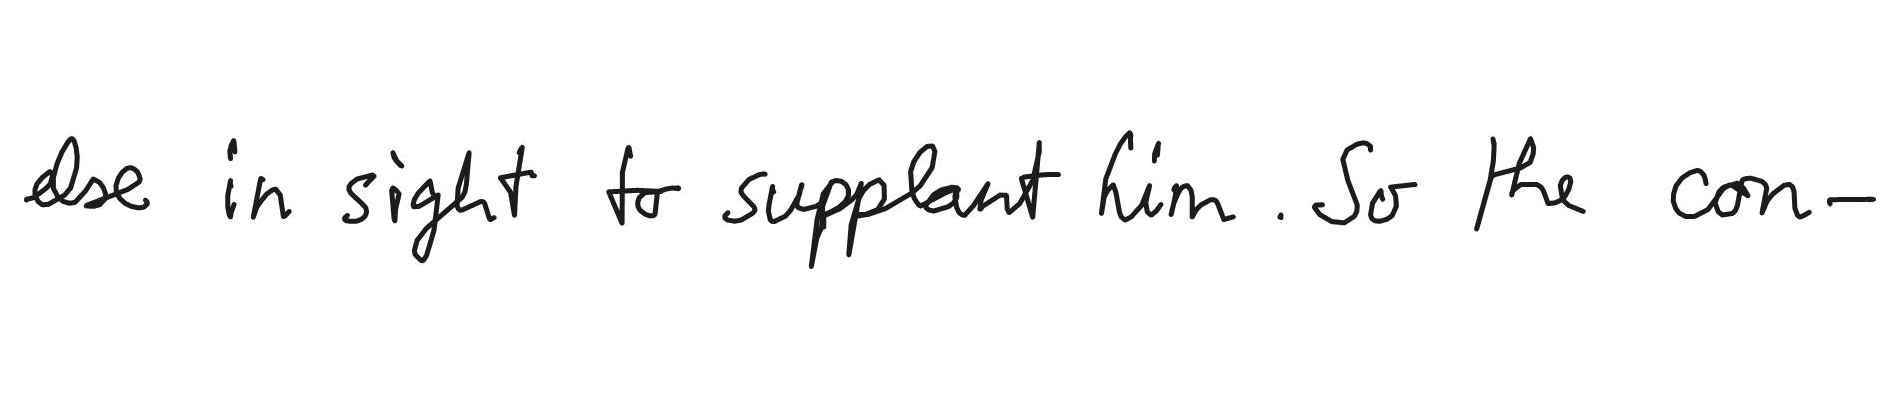 else in sight to supplant him. So the con-